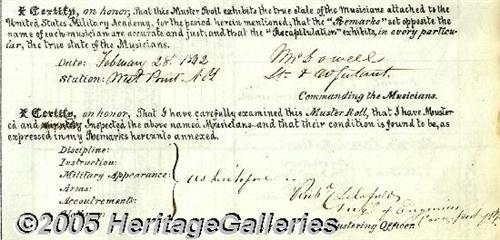 I Certify, on honor, That this Muster Roll exhibits the true state of the Musicians attached to the
United States Military Academy, for the period herein mentioned, that the "Remarks" set opposite the
name of each musician are accurate and just; and that the "Recapitulation" exhibits, in every particu-
lar, the true state of the Musicians.
Date: February 28th 1842
Station: West Point N.Y
McDowell
Lt. &
Commanding the Musicians.
I Certify, on honor, That I have carefully examined this Muster Roll, that I have Muster-
ed and Inspected the above named Musicians and that their condition is found to be, as
expressed in my Remarks hereunto annexed.
Discipline:
Instruction:
Military Appearance:
Arms:
Accoutrements:
as heretofore
Richd Delafield
of Engineers
Mustering Officer
©2005 HeritageGalleries.com